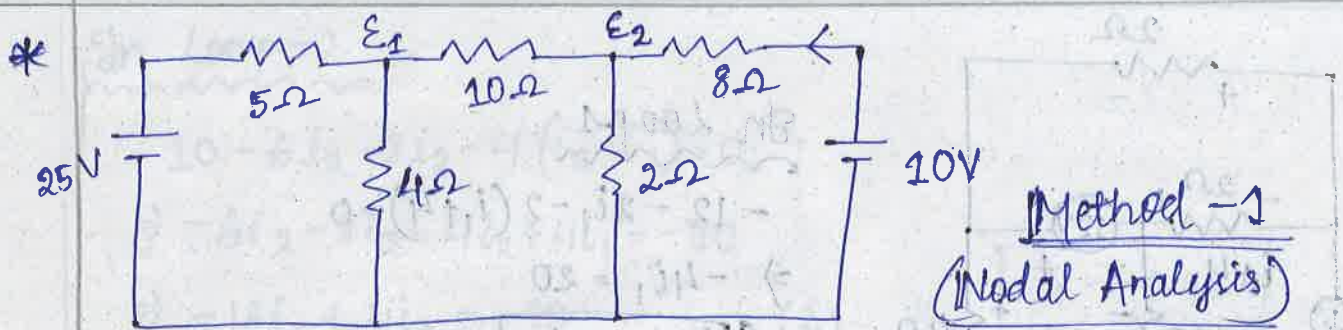 *
ε1 ε2
5Ω 10Ω 8Ω
25V 4Ω 2Ω 10V
Method-1
(Nodal Analysis)